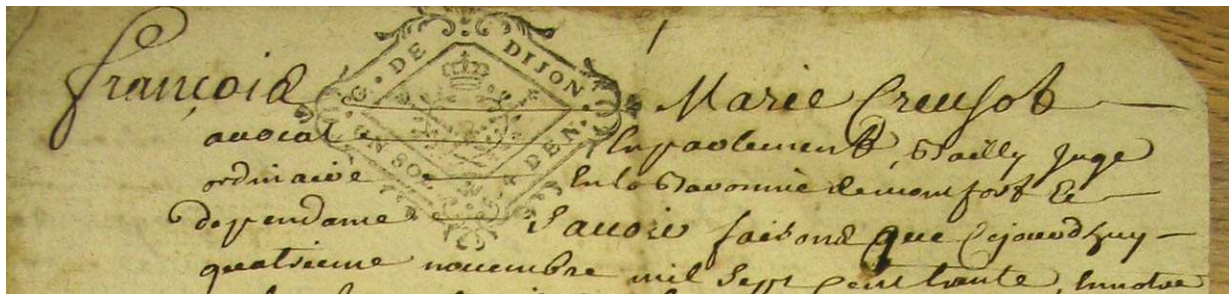 G. DE DIJON
UN SOL DEN.
françois Marie Creusot
avocat En parlement, Bailly Juge
ordinaire En la Baronnie de montfort Et
dependance Sauoir faisons que Cejourdhuy
quatrieme nouembre mil Sept Cent trente, En notre